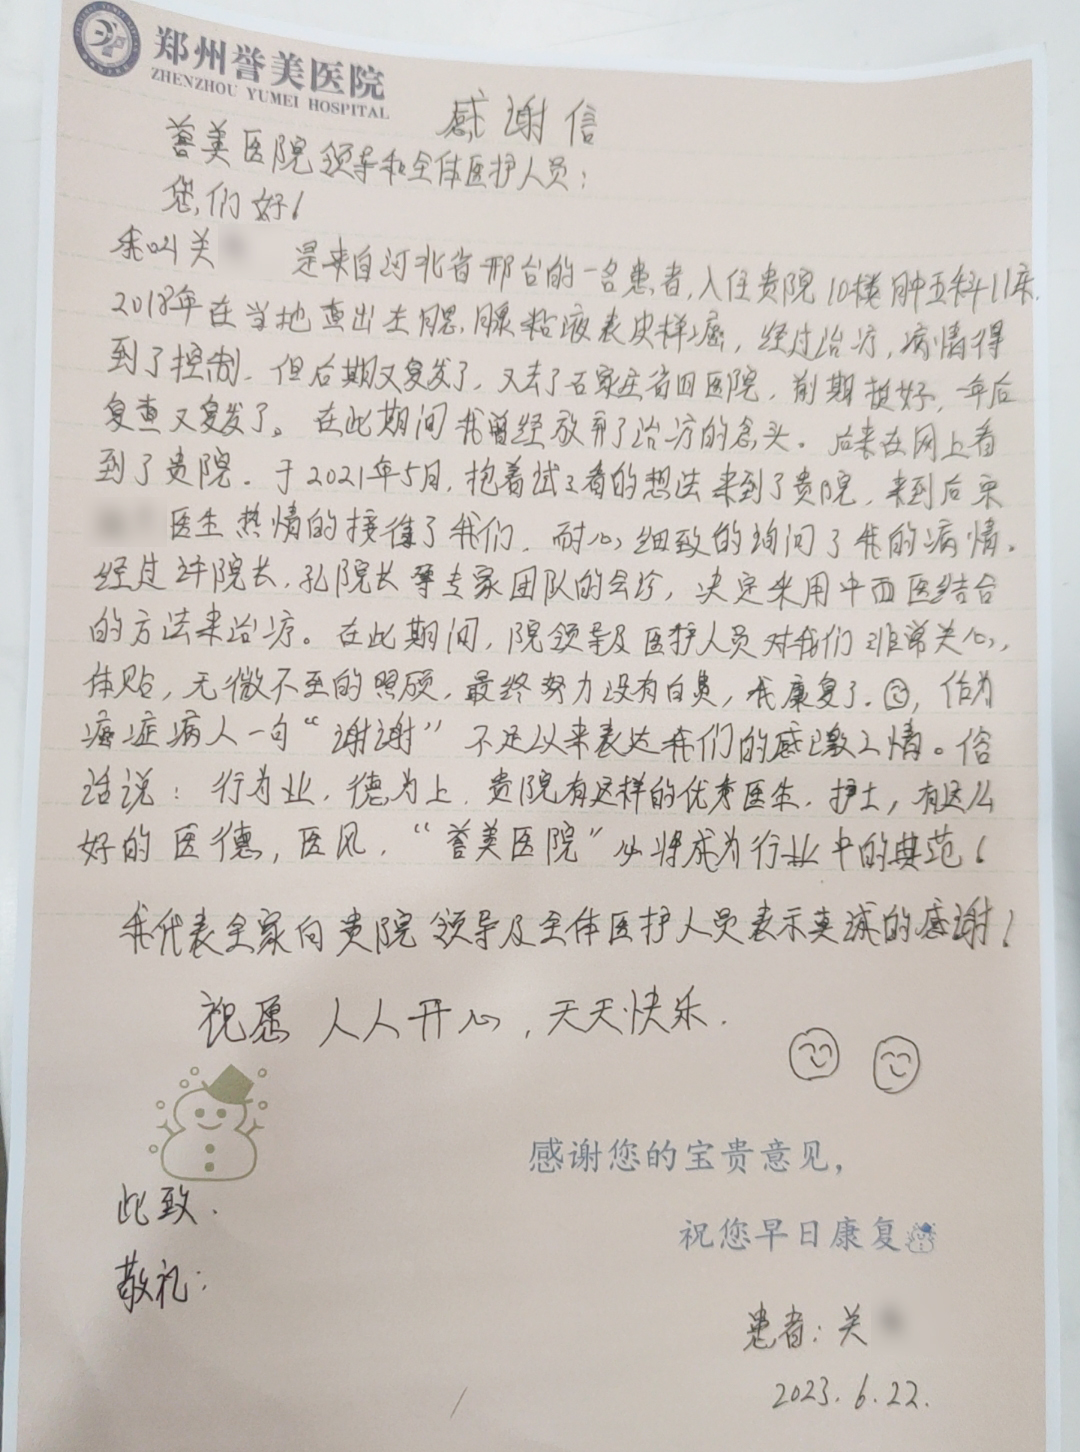 郑州誉美医院
ZHENZHOU YUMEI HOSPITAL
感谢信
誉美医院领导和全体医护人员：
您们好！
我叫关 是来自河北省邢台的一名患者，入住贵院10楼肿五科11床.
2018年在当地查出左腮腺粘液表皮样癌，经过治疗，病情得
到了控制，但后期又复发了，又去了石家庄省四医院，前期挺好，一年后
复查又复发了。在此期间我曾经放弃了治疗的念头。后来在网上看
到了贵院．于2021年5月，抱着试之看的想法来到了贵院，来到后
医生热情的接待了我们，耐心细致的询问了我的病情．
经过许院长，孔院长等专家团队的会诊，决定采用中西医结合
的方法来治疗。在此期间，院领导及医护人员对我们非常关心，
体贴，无微不至的照顾，最终努力没有白费，我康复了．，作为
癌症病人一句“谢谢”不足以来表达我们的感激之情。俗
话说：行为业，德为上，贵院有这样的优秀医生，护士，有这么
好的医德，医风，“誉美医院”必将成为行业中的典范！
我代表全家向贵院领导及全体医护人员表示真诚的感谢！
祝愿 人人开心，天天快乐．
感谢您的宝贵意见，
祝您早日康复
此致．
敬礼：
患者：关
2023.6.22.